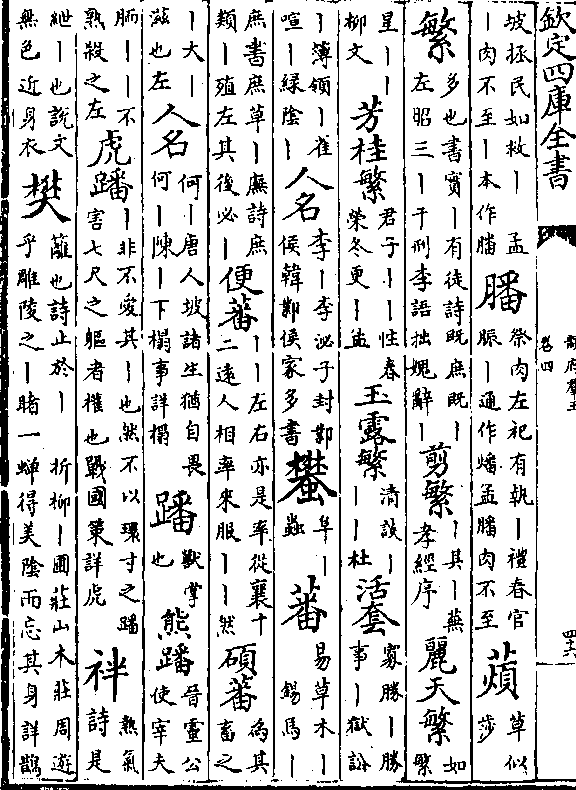 欽定四庫全書
韻府群玉
卷四
四六
坡拯民如救｜　孟｜肉不至｜本作膰 膰 祭肉左祀有執｜禮春官脤｜通作燔孟膰肉不至 薠 草似莎
繁 多也書實｜有徒詩既庶既｜左昭三｜于刑李語拙媿辭｜ 剪繁 ｜其｜蕪孝經序 麗天繁 如繁
星｜｜柳文 芳桂繁 君子｜｜性春榮冬更｜孟 玉露繁 清談｜｜｜杜 活套 寡勝｜勝事｜獄訟
｜簿領｜雀喧｜綠陰｜ 人名 李｜李泌子封鄴侯韓鄴侯家多書 蠜 阜｜蟲 蕃 易草木｜錫馬｜
庶書庶草｜廡詩庶類｜殖左其後必｜ 便蕃 ｜｜左右亦是率從襄十二遠人相率來服｜｜然 碩蕃 為其畜之
｜大｜滋也左 人名 何｜唐人坡諸生猶自畏何｜陳｜下榻事詳榻 蹯 獸掌也 熊蹯 晉靈公使宰夫
胹｜｜不熟殺之左 虎蹯 ｜非不愛其｜也然不以環寸之蹯害七尺之軀者權也戰國策詳虎 袢 熱氣詩是
紲｜也說文無色近身衣 樊 籬也詩止於｜　折柳｜圃莊山木莊周遊乎雕陵之｜睹一蟬得美陰而忘其身詳鵲